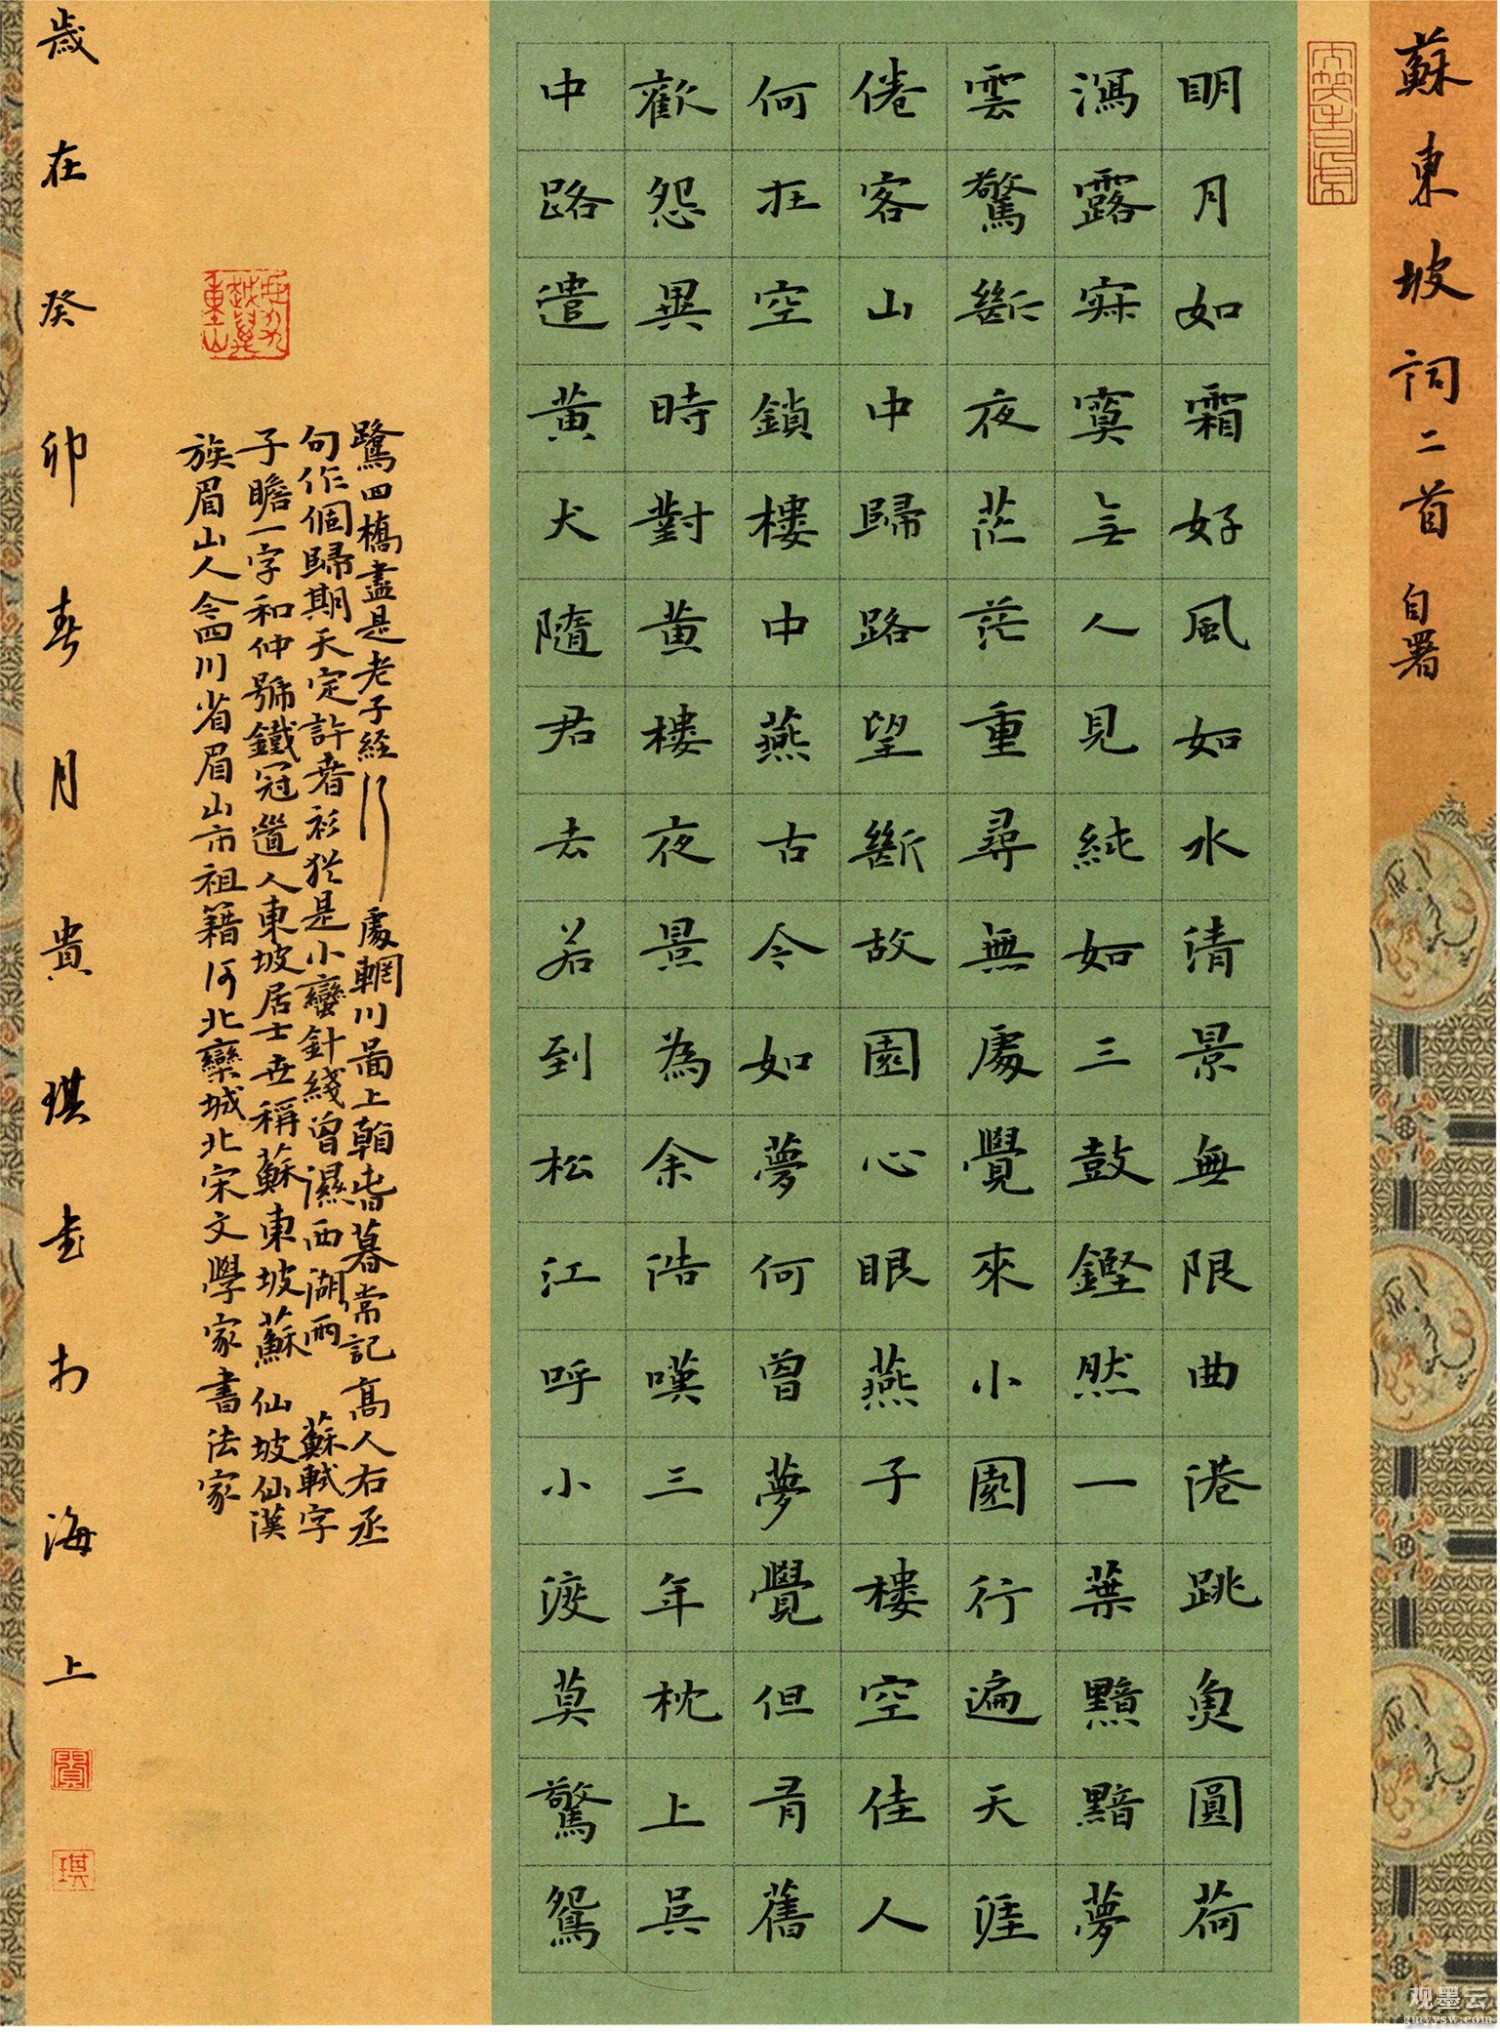 蘇東坡詞二首 自署
明月如霜好風如水清景無限曲港跳魚圓荷
瀉露寂寞無人見紞如三鼓鏗然一葉黯黯夢
雲驚斷夜茫茫重尋無處覺來小園行遍天涯
倦客山中歸路望斷故園心眼燕子樓空佳人
何在空鎖樓中燕古今如夢何曾夢覺但有舊
歡怨異時對黃樓夜景為余浩嘆三年枕上吳
中路遣黃犬隨君去若到松江呼小渡莫驚鴛
鷺四橋盡是老子經行處輞川圖上看春暮常記高人右丞
句作個歸期天定許春衫猶是小蠻針綫曾濕西湖雨 蘇軾字
子瞻一字和仲號鐵冠道人東坡居士世稱蘇東坡蘇仙坡仙漢
族眉山人今四川省眉山市祖籍河北欒城北宋文學家書法家
歲在癸卯春月貴琪書於海上
琪
观墨云
gmyysw.com